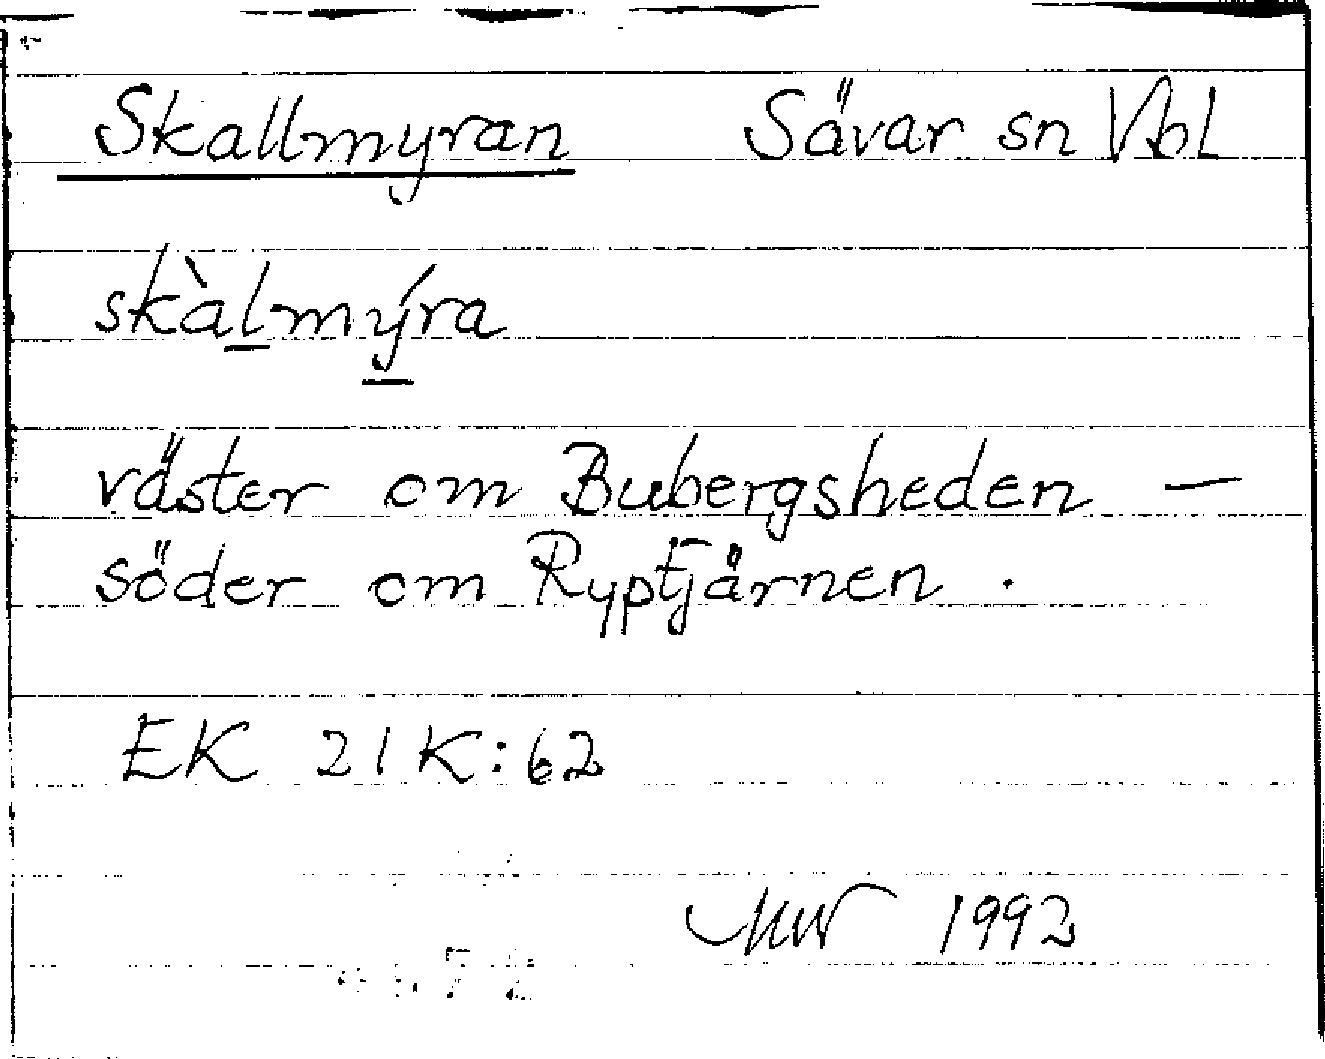 Skallmyran Sävar sn Vbl
skàl̲mý̲ra
väster om Bubergsheden —
söder om Ryptjärnen.
EK 21K:62
MW 1992